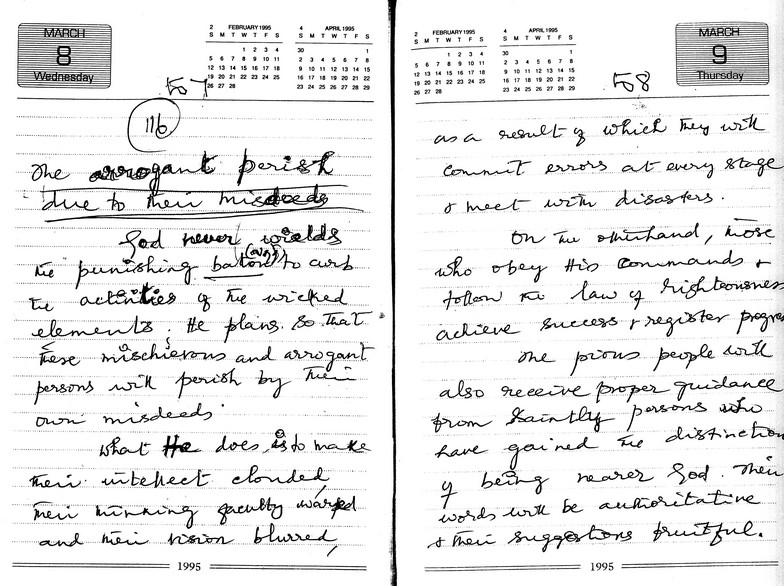 MARCH
8
Wednesday
2 FEBRUARY 1995
S M T W T F S
1 2 3 4
5 6 7 8 9 10 11
12 13 14 15 16 17 18
19 20 21 22 23 24 25
26 27 28
4 APRIL 1995
S M T W T F S
30 1
2 3 4 5 6 7 8
9 10 11 12 13 14 15
16 17 18 19 20 21 22
23 24 25 26 27 28 29
507
116
The arrogant perish
due to their misdeeds
God never wields
the punishing baton to curb
the activities of the wicked
elements. He plans so that
these mischievous and arrogant
persons will perish by their
own misdeeds.
What He does, is to make
their intellect clouded,
their thinking faculty warped
and their vision blurred,
1995
2 FEBRUARY 1995
S M T W T F S
1 2 3 4
5 6 7 8 9 10 11
12 13 14 15 16 17 18
19 20 21 22 23 24 25
26 27 28
4 APRIL 1995
S M T W T F S
30 1
2 3 4 5 6 7 8
9 10 11 12 13 14 15
16 17 18 19 20 21 22
23 24 25 26 27 28 29
MARCH
9
Thursday
508
as a result of which they will
commit errors at every stage
& meet with disasters.
On the otherhand, those
who obey His commands &
follow the law of righteousness
achieve success & register progres
The pious people will
also receive proper guidance
from Saintly persons who
have gained the distinction
of being nearer God. Their
words will be authoritative
& their suggestions fruitful.
1995